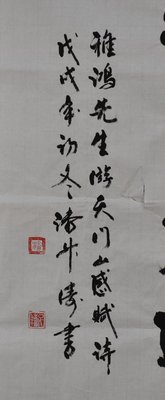 雅鸿先生游天门山感赋诗
戊戌年初冬 涛书